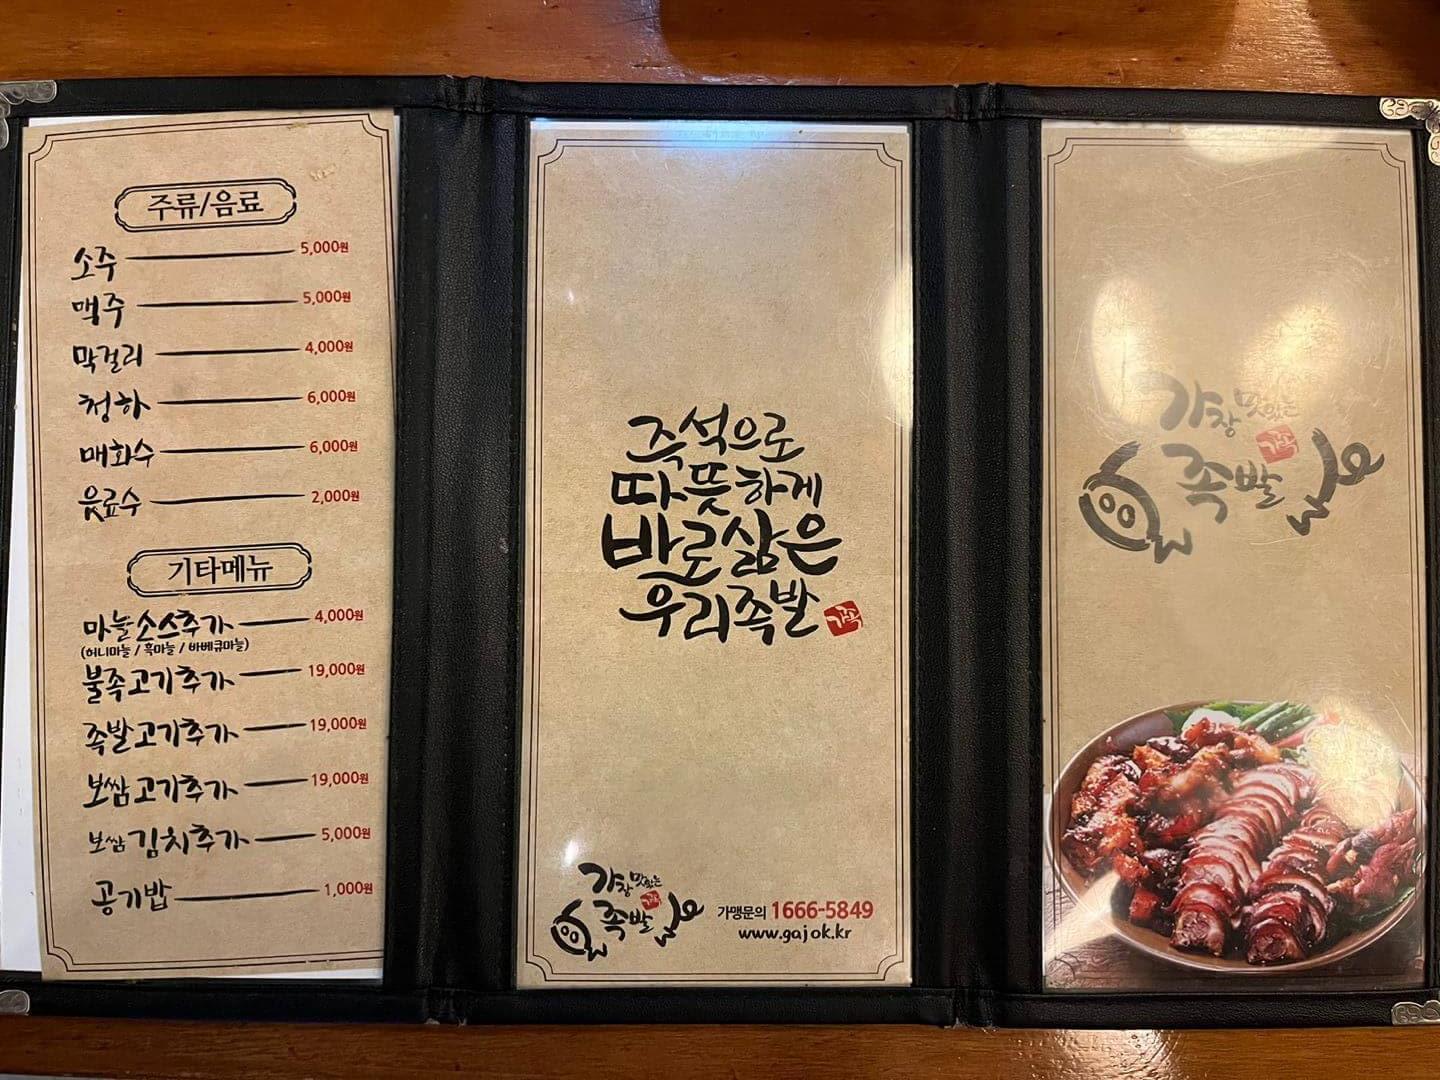 주류/음료
소주 5,000원
맥주 5,000원
막걸리 4,000원
청하 6,000원
매화수 6,000원
음료수 2,000원
기타메뉴
마늘소스추가 4,000원
(허니마늘 / 흑마늘 / 바베큐마늘)
불족고기추가 19,000원
족발고기추가 19,000원
보쌈고기추가 19,000원
보쌈김치추가 5,000원
공기밥 1,000원
즉석으로
따뜻하게
바로삶은
우리족발
가족
가장맛있는
족발
가족
가맹문의 1666-5849
www.gajok.kr
가장맛있는
가족
족발